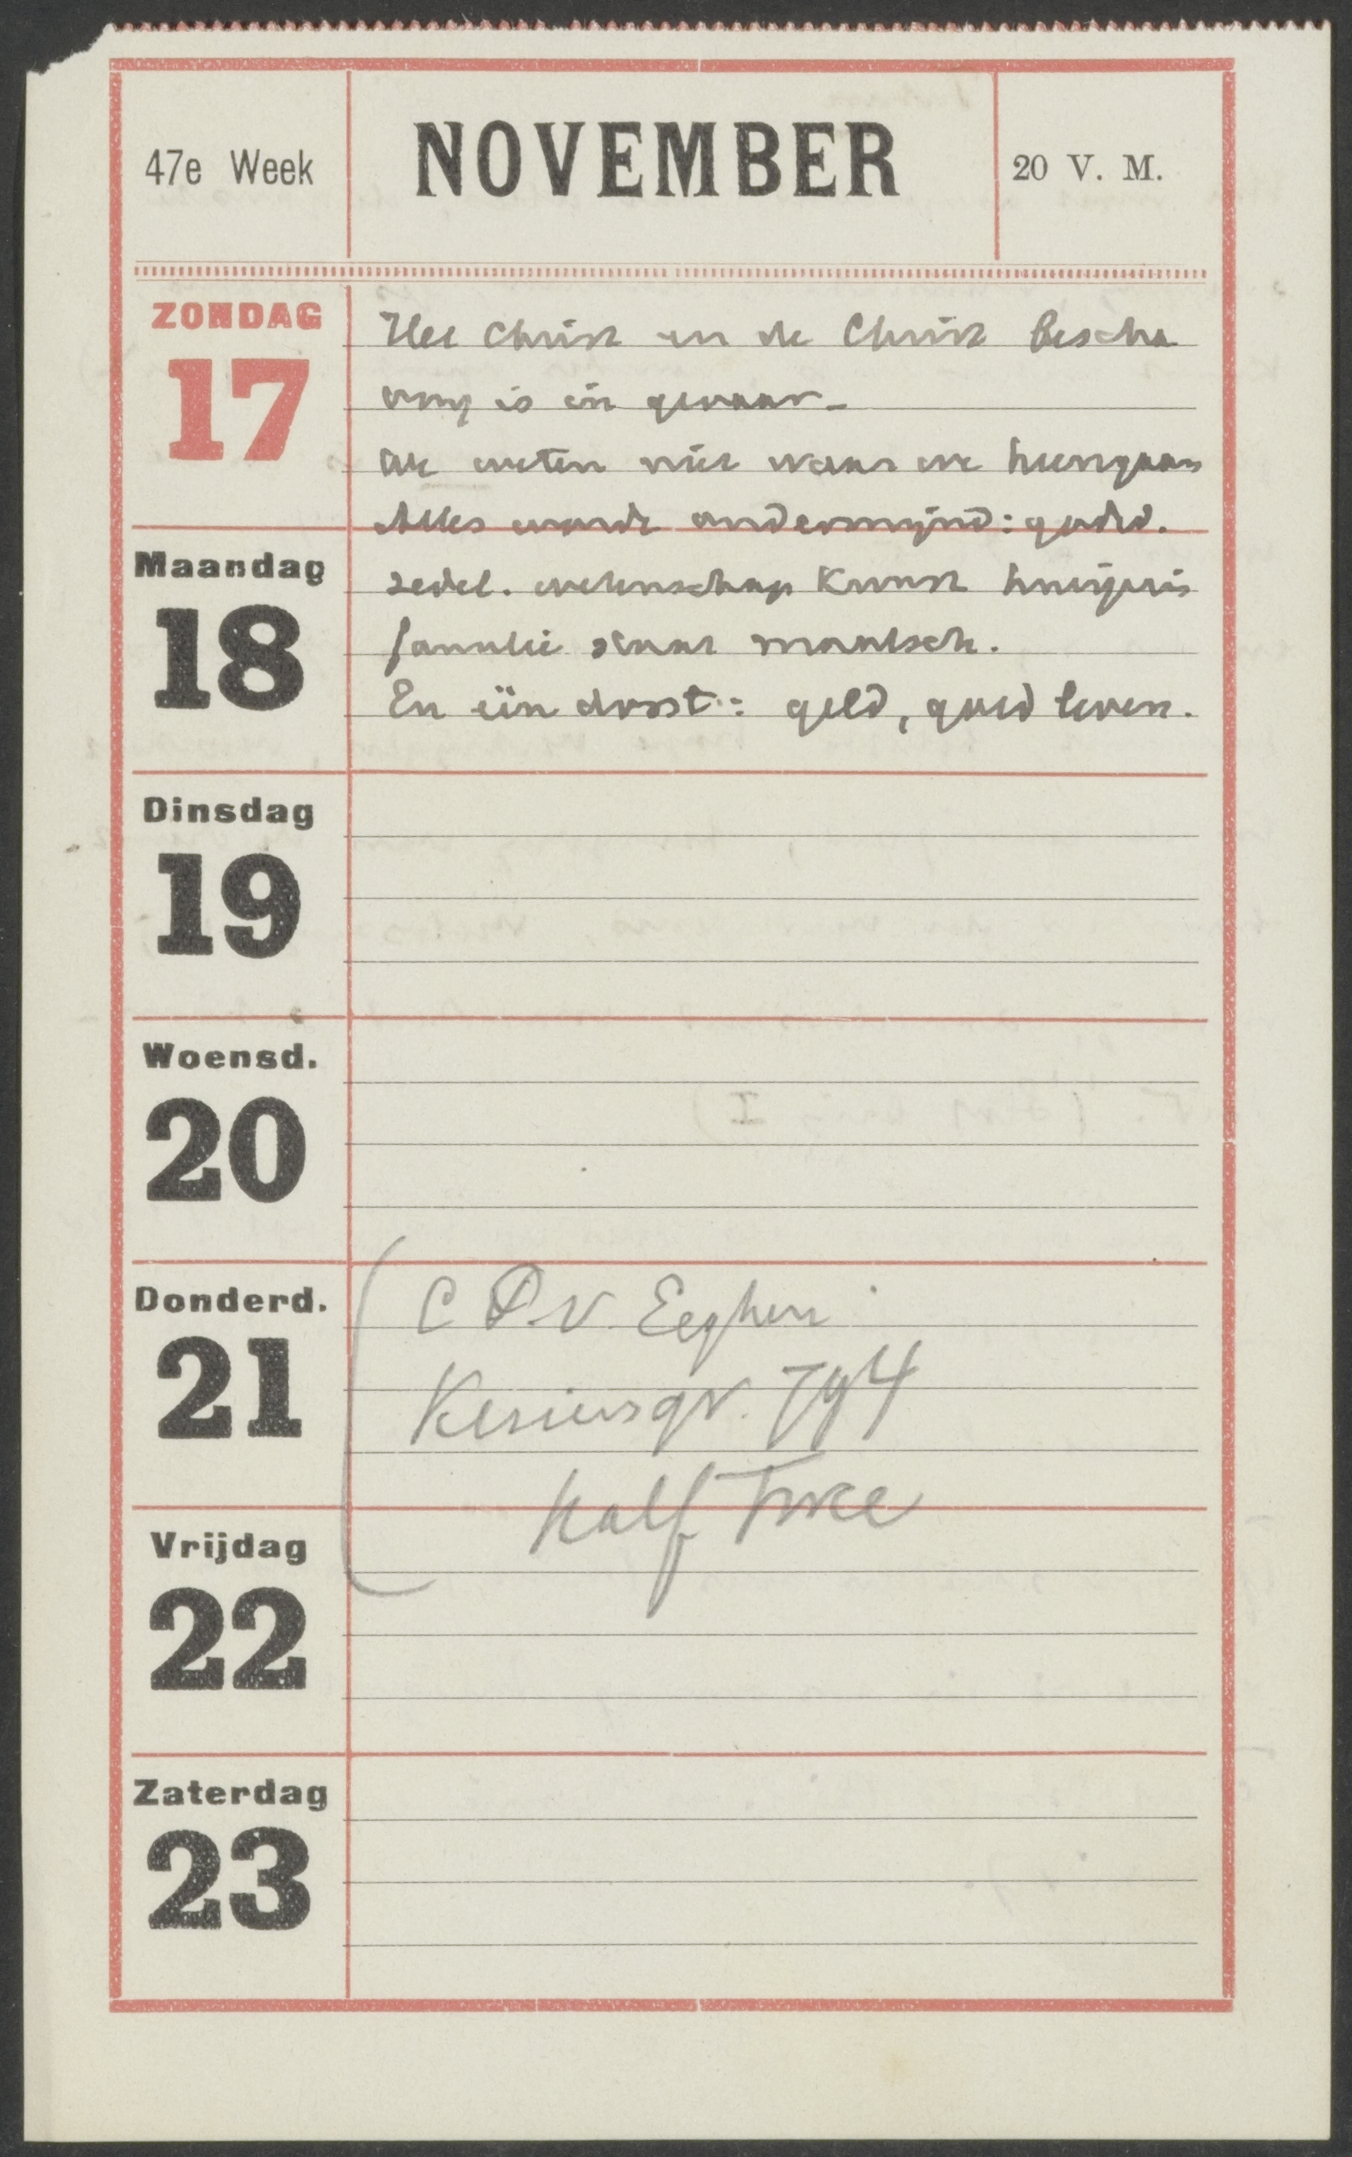 47e Week
NOVEMBER
20 V. M.
ZONDAG
17
Het Christ en de Christ bescha
ving is in gevaar_
We weten niet waar we heengaan
Alles wordt ondermijnd: godsd.
zedel. wetenschap Kunst huisgezin
familie staat maatsch.
En één dorst: geld, goed leven.
Maandag
18
Dinsdag
19
Woensd.
20
Donderd.
21
C P. v. Eeghen
Keizersgr. 794
half Twee
Vrijdag
22
Zaterdag
23